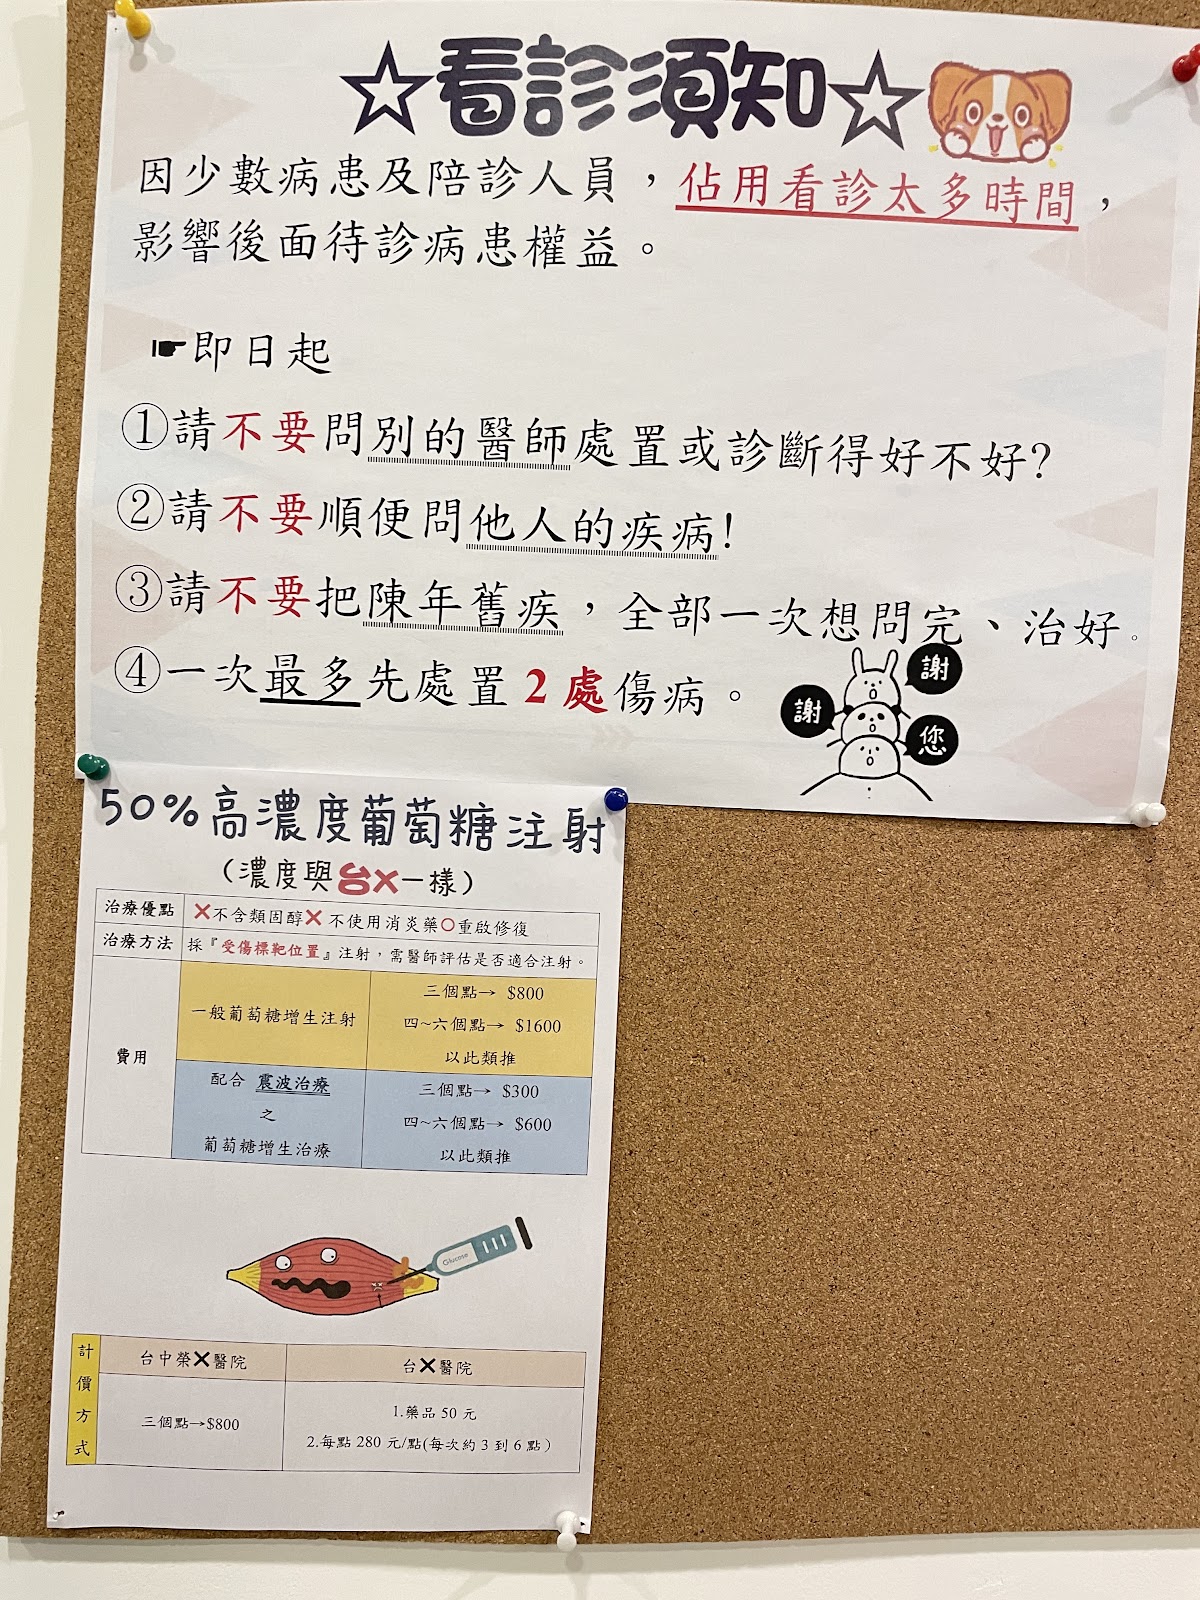 ☆看診須知☆
因少數病患及陪診人員，佔用看診太多時間，
影響後面待診病患權益。
☛即日起
①請不要問別的醫師處置或診斷得好不好?
②請不要順便問他人的疾病!
③請不要把陳年舊疾，全部一次想問完、治好。
④一次最多先處置2處傷病。
謝
謝
您
50%高濃度葡萄糖注射
(濃度與台✕一樣)
治療優點 ✕不含類固醇✕ 不使用消炎藥○重啟修復
治療方法 採『受傷標靶位置』注射，需醫師評估是否適合注射。
費用
一般葡萄糖增生注射
三個點→ $800
四~六個點→ $1600
以此類推
配合 震波治療
之
葡萄糖增生治療
三個點→ $300
四~六個點→ $600
以此類推
Glucose
計價方式
台中榮✕醫院
台✕醫院
三個點→$800
1.藥品 50 元
2.每點 280 元/點(每次約 3 到 6 點)